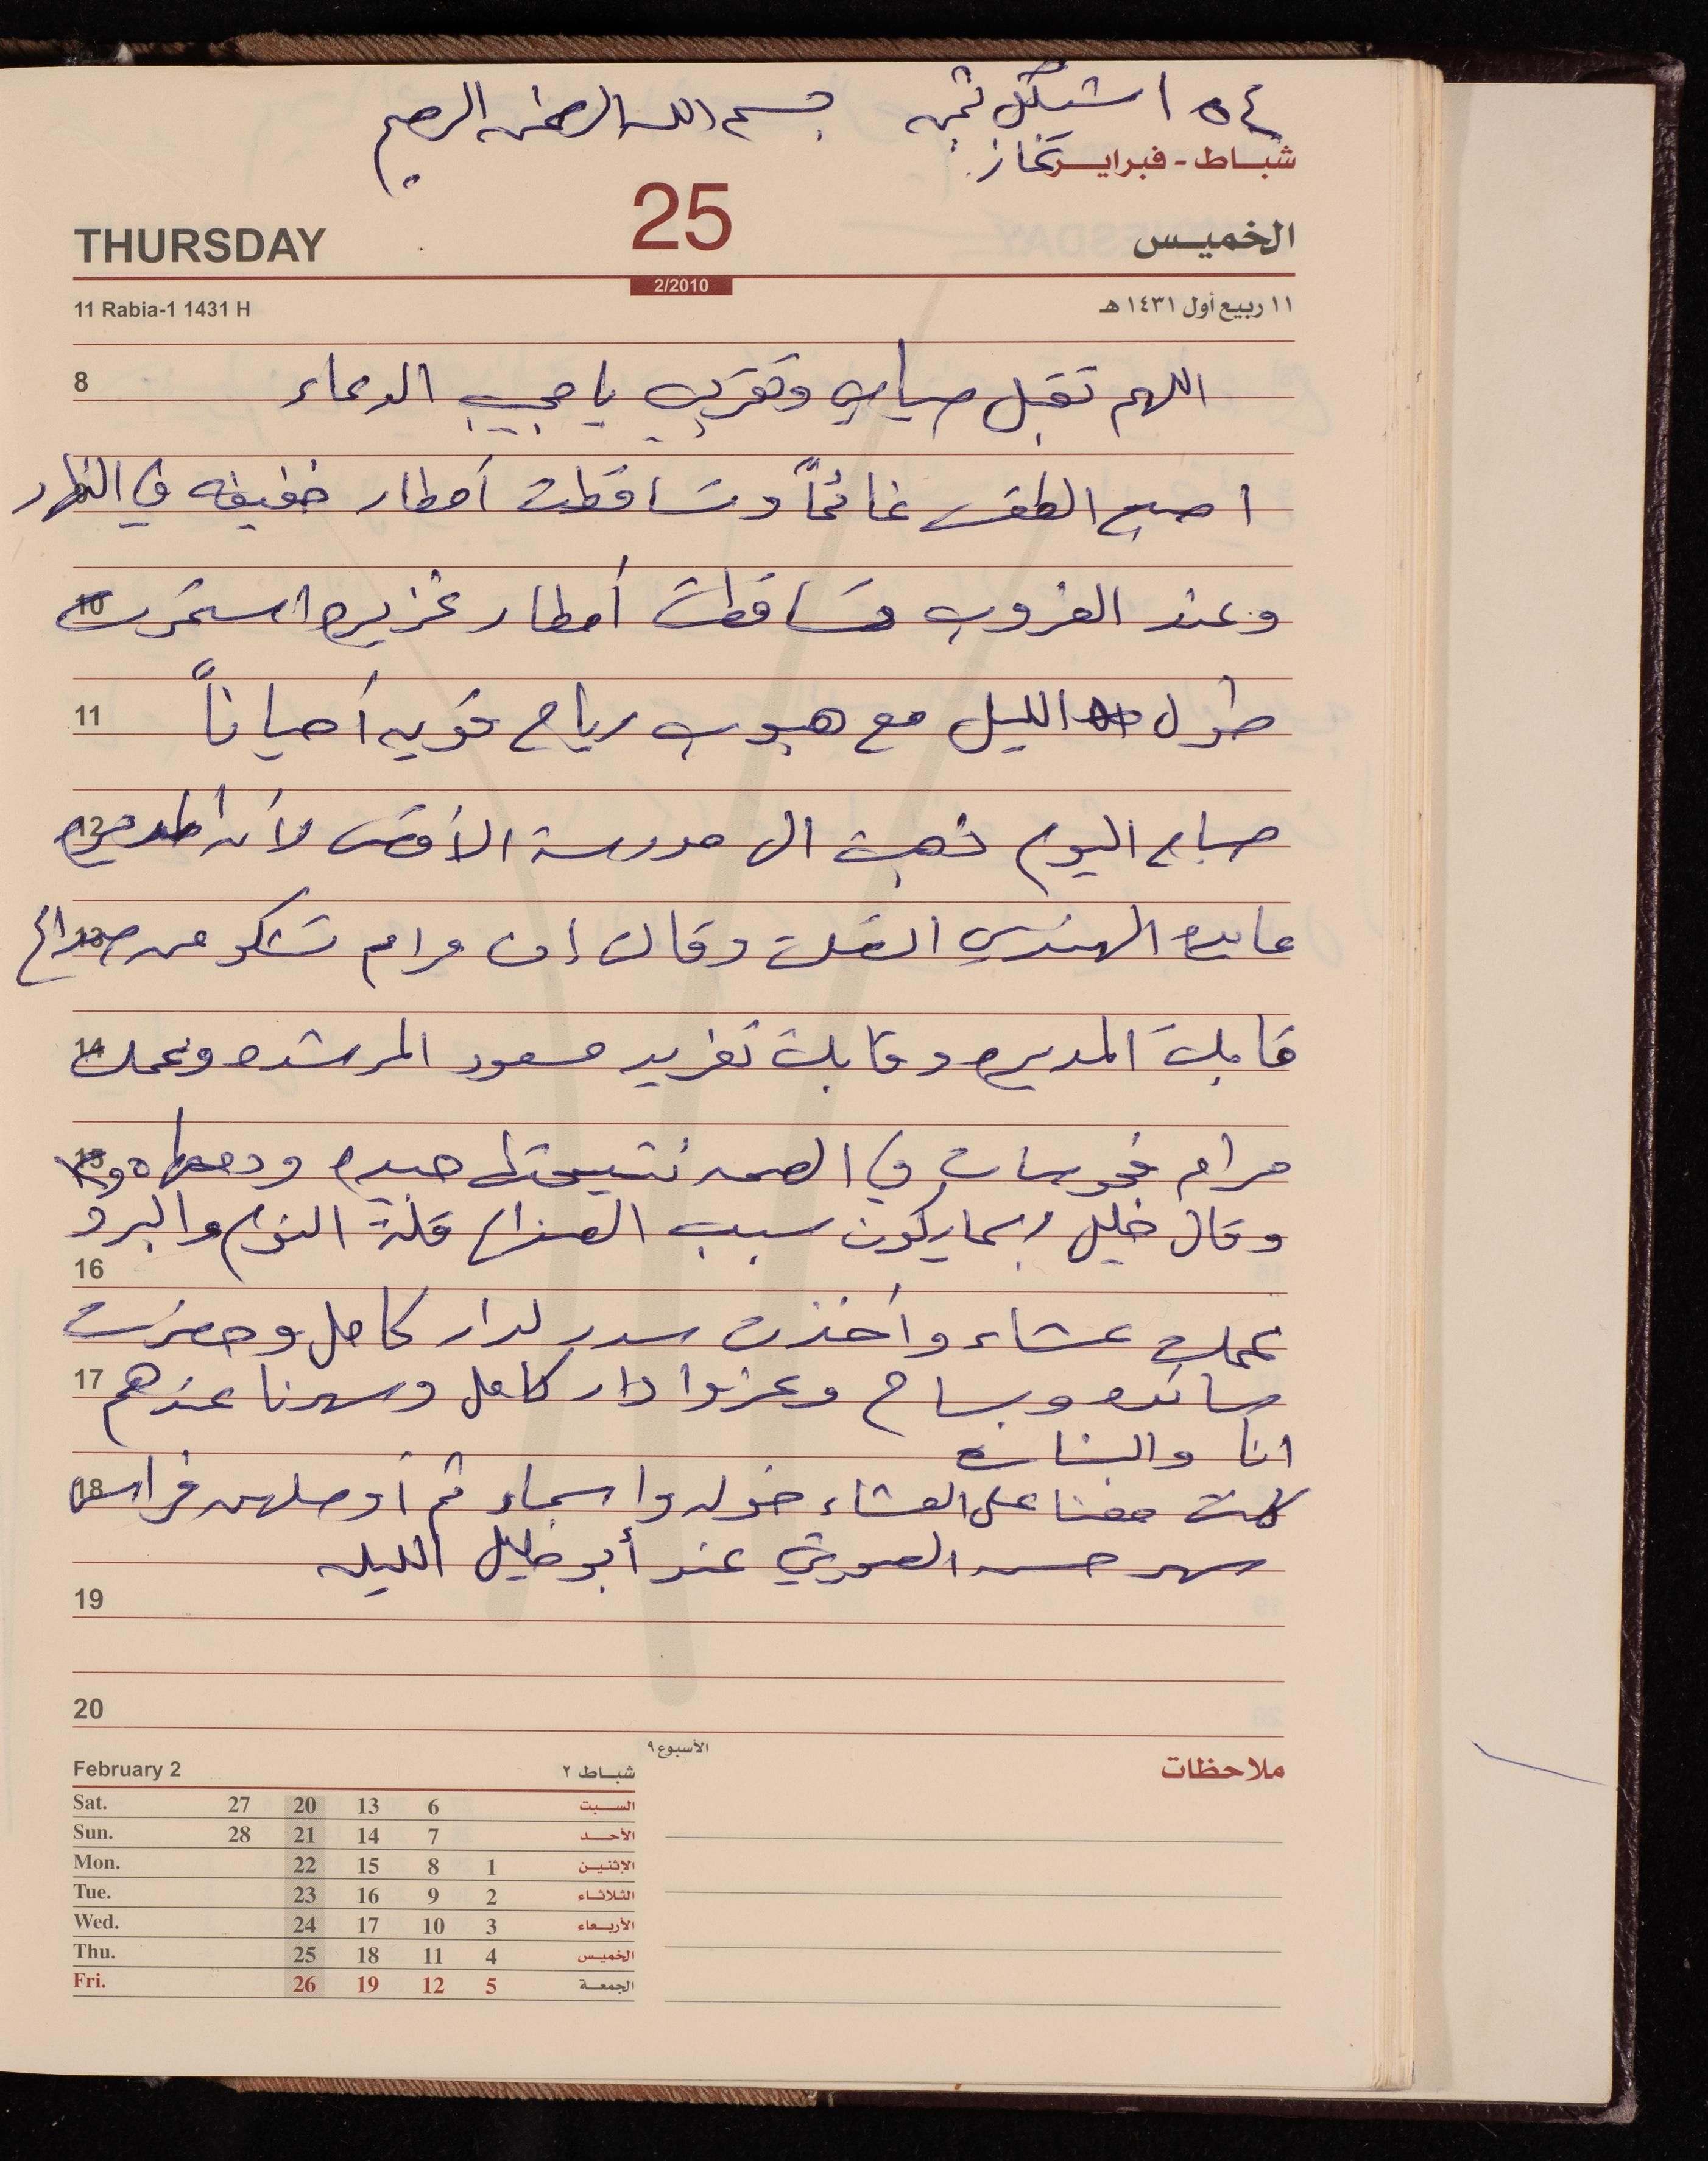 ٥٤ ا شيكل ثمن بسم الله الرحمن الرحيم
شباط - فبراير غاز
THURSDAY 25 الخميس
2/2010
11 Rabia-1 1431 H ١١ ربيع أول ١٤٣١ هـ
8 اللهم تقبل صيامي وتقربي يا مجيب الدعاء
اصبح الطقس غائماً وتساقطت أمطار خفيفه في النهار
10 وعند الغروب تساقطت أمطار غزيره استمرت
11 طول الليل مع هبوب رياح قويه أحياناً
12 صباح اليوم ذهبت الى مدرسة الأقصى لأن
13 عايده الهندي اتصلت وقالت إن مرام تشكو من صداع
14 قابلت المديره وقابلت تغريد مسعود المرشده وعملت
15 مرام فحوصات في الصحه نتيجتها جيده ودمها
وقال خليل ربما يكون سبب الصداع قلة النوم والبرد
16
عملت عشاء وأخذت سدر لدار كامل وحضرت
17 سائده وسماح وعزوا دار كامل وسهرنا عندهم
انا والبنات
18 كانت معنا على العشاء خوله واسماء ثم أوصلهن فراس
سهر حسن الصوريتي عند أبو خليل الليله
19
20
الأسبوع ٩
ملاحظات
February 2 شباط ٢
Sat. 27 20 13 6 السبت
Sun. 28 21 14 7 الأحد
Mon. 22 15 8 1 الإثنين
Tue. 23 16 9 2 الثلاثاء
Wed. 24 17 10 3 الأربعاء
Thu. 25 18 11 4 الخميس
Fri. 26 19 12 5 الجمعة